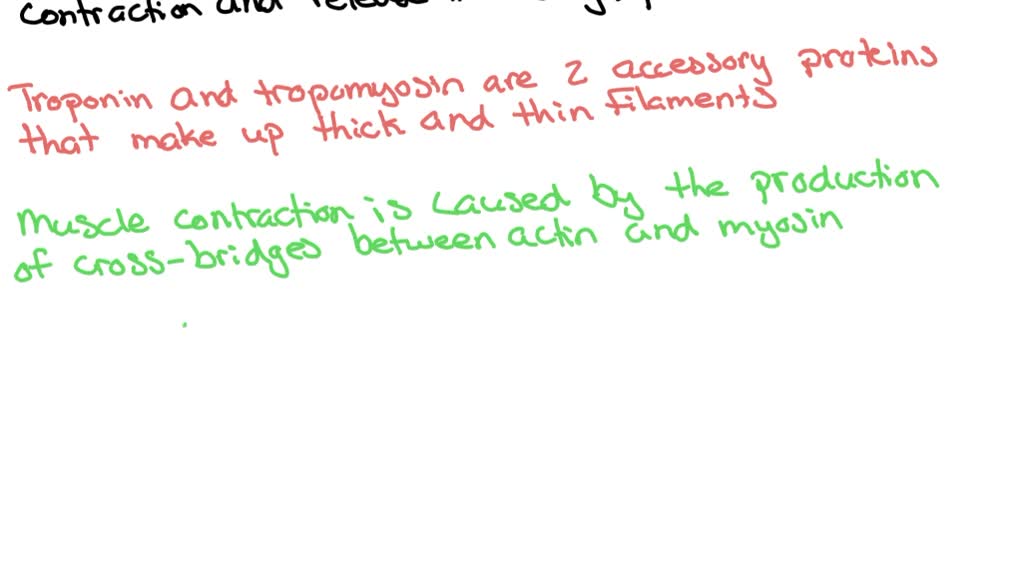 contraction and release
Troponin and tropomyosin are 2 accessory proteins
that make up thick and thin filaments
Muscle contraction is caused by the production
of cross-bridges between actin and myosin